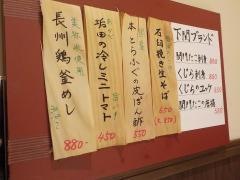 下関ブランド
関門たこ刺身
くじら刺身
くじらのユッケ
関門たこの唐揚
石臼挽き生そば
650
本とらふぐの皮ぽん酢
550
垢田の冷しミニトマト
450
長州鶏釜めし
880-